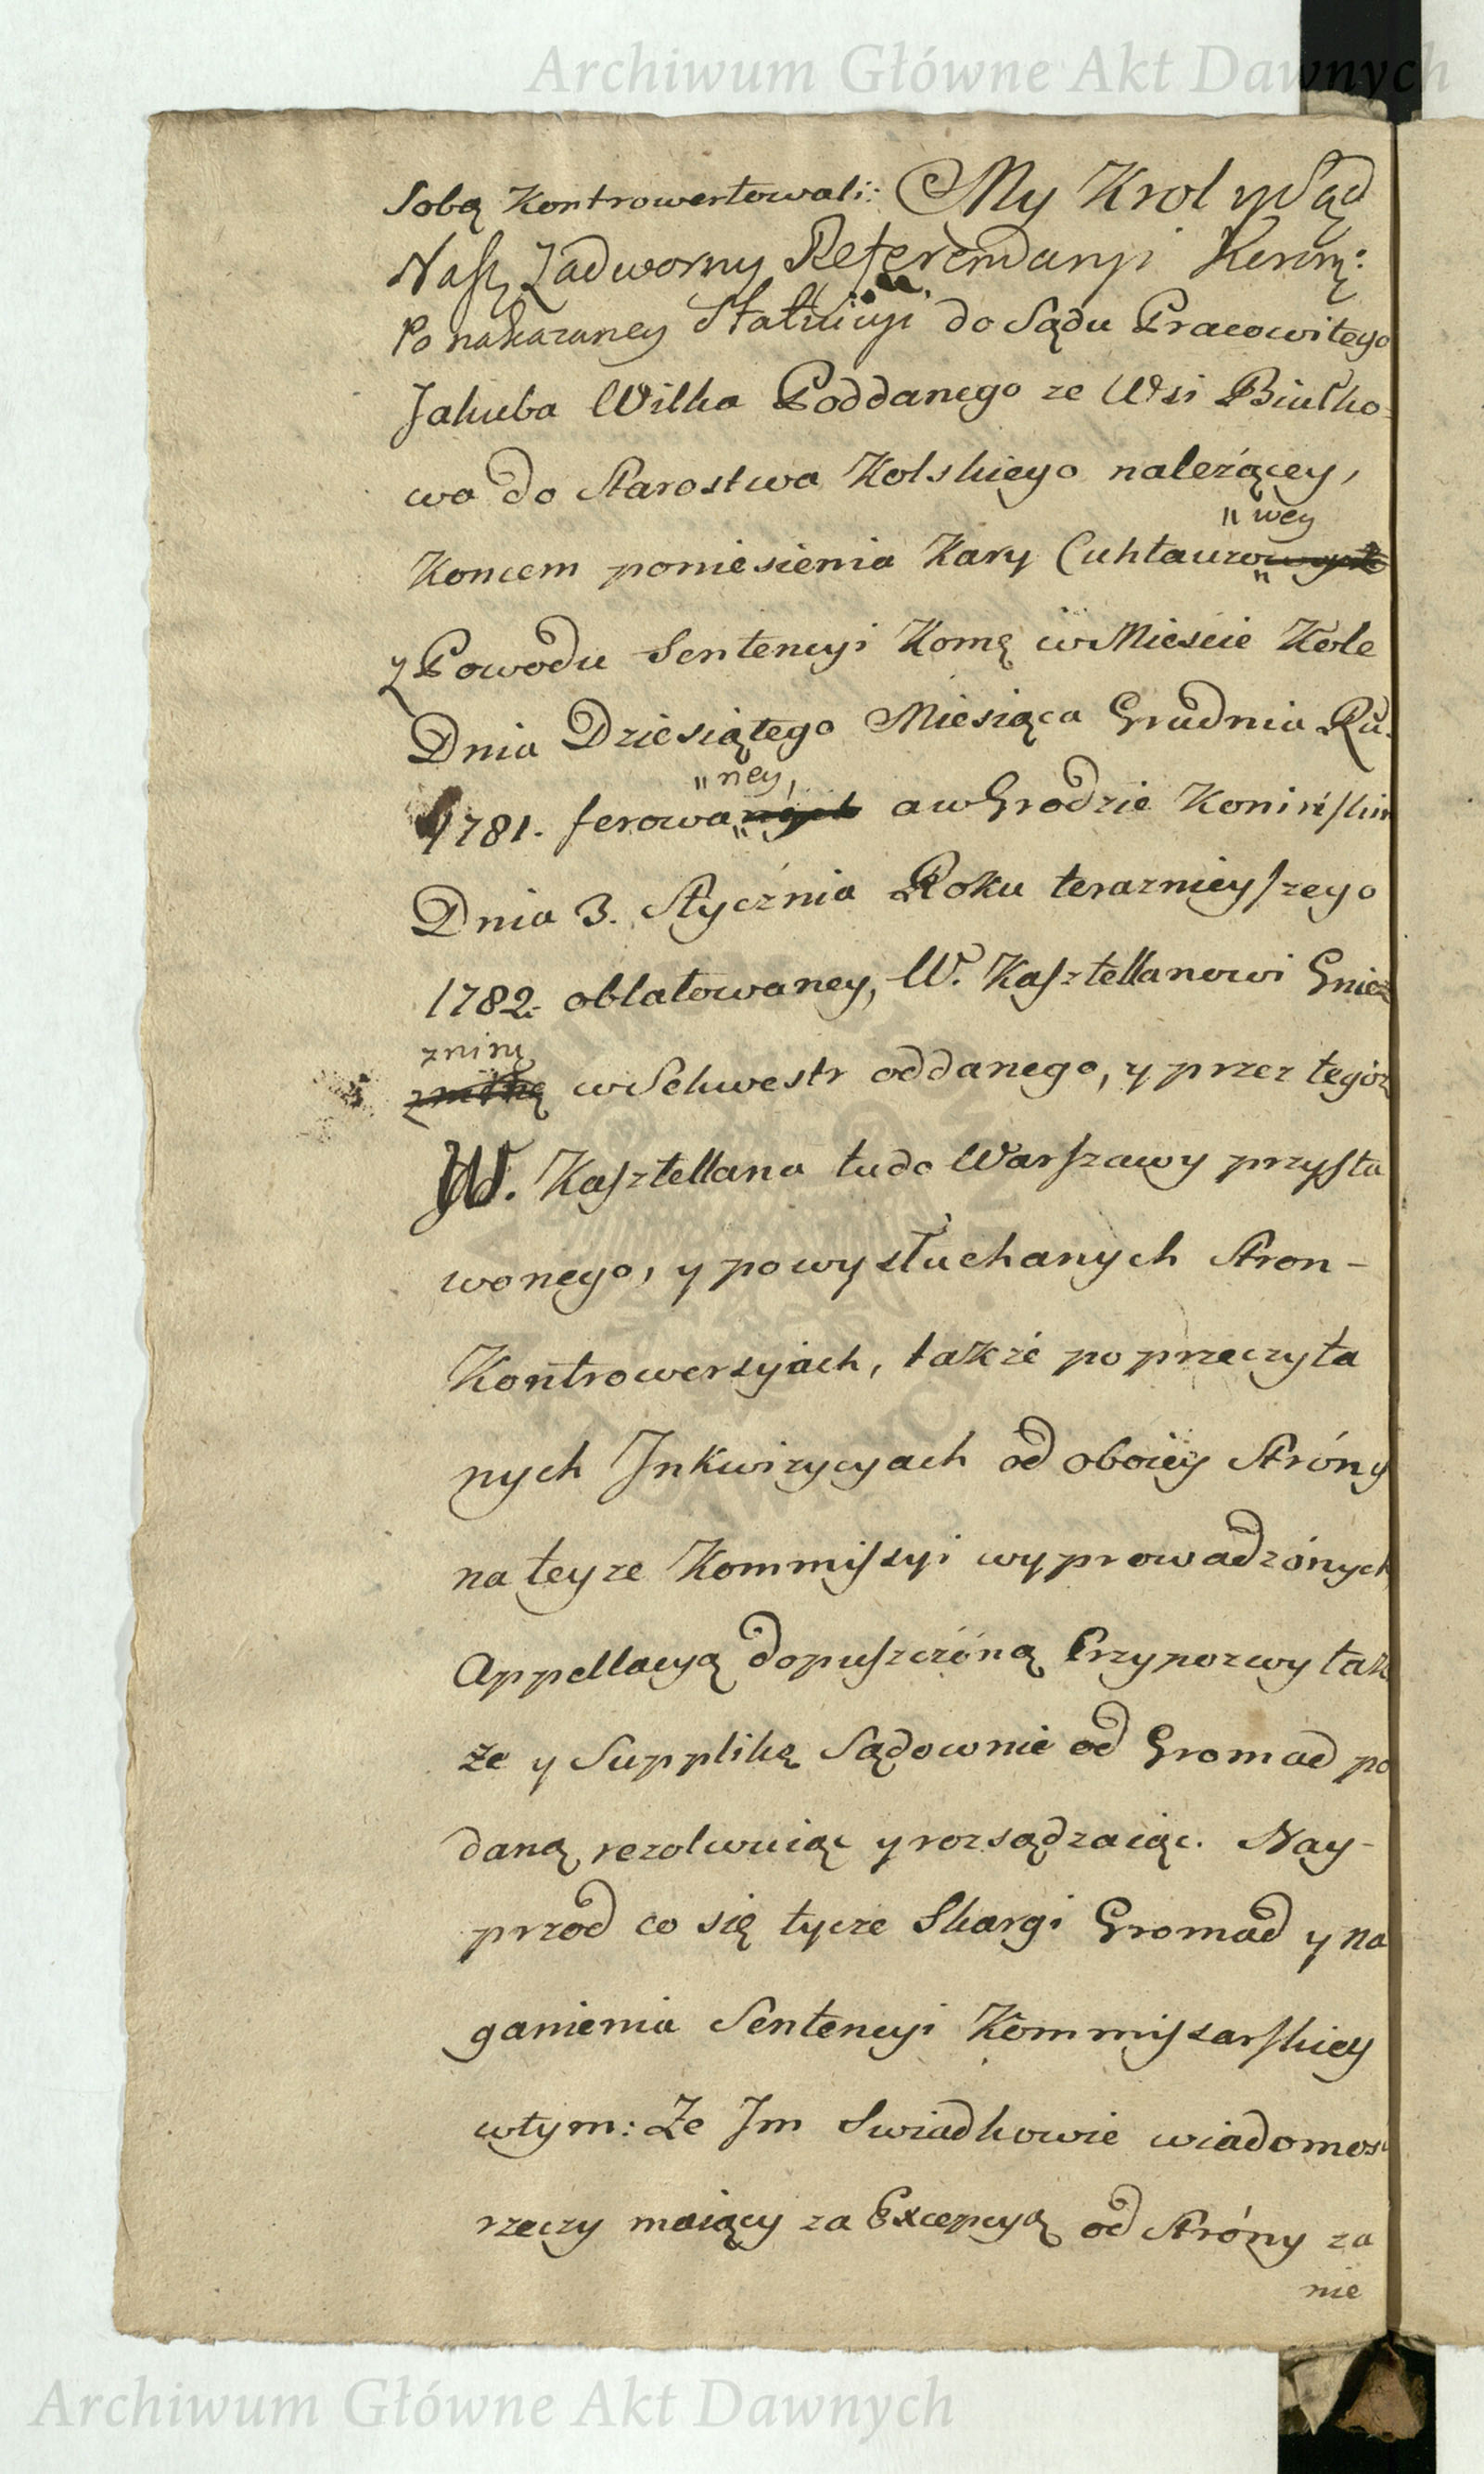 Archiwum Główne Akt Dawnych
Sobą Kontrowertowali: My Krol y Sąd
Nasz Zadworny Referendaryi Koron:
Po nakazaney Statuicyi do Sądu Pracowitego
Jakuba Wilka Poddanego ze Wsi Białko-
wa do Starostwa Kolskiego należącey,
"wey
Koncem poniesienia Kary Cuhtauzo
z Powodu Sentencyi Kom̃ę w Mieście Kole
Dnia Dziesiątego Miesiąca Grudnia Ru.
"ney,
1781. ferowanych a w Grodzie Konińskim
Dnia 3. Stycznia Roku terazniejszego
1782. oblatowaney, W. Kasztellanowi Gnieź
zninę
w Sekwestr oddanego, y przez tegoż
W. Kasztellana tudo Warszawy przysta
wonego, y po wysłuchanych Stron-
Kontrowersyiach, także po przeczyta
nych Inkwizycyach od oboiey Stróny
na teyże Kommissyi wyprowadzónych
Appellacyą dopuszczóną Przypozwy tak
że y Supplikę Sądownie od Gromad po
daną, rezolwuiąc y rozsądzaiąc. Nay-
przod co się tycze Skargi Gromad y na
ganienia Sentencyi Kommissarskiey
w tym: Ze Jm Swiadkowie wiadomość
rzeczy maiący za Excepcyą od Stróny za
nie
Archiwum Główne Akt Dawnych